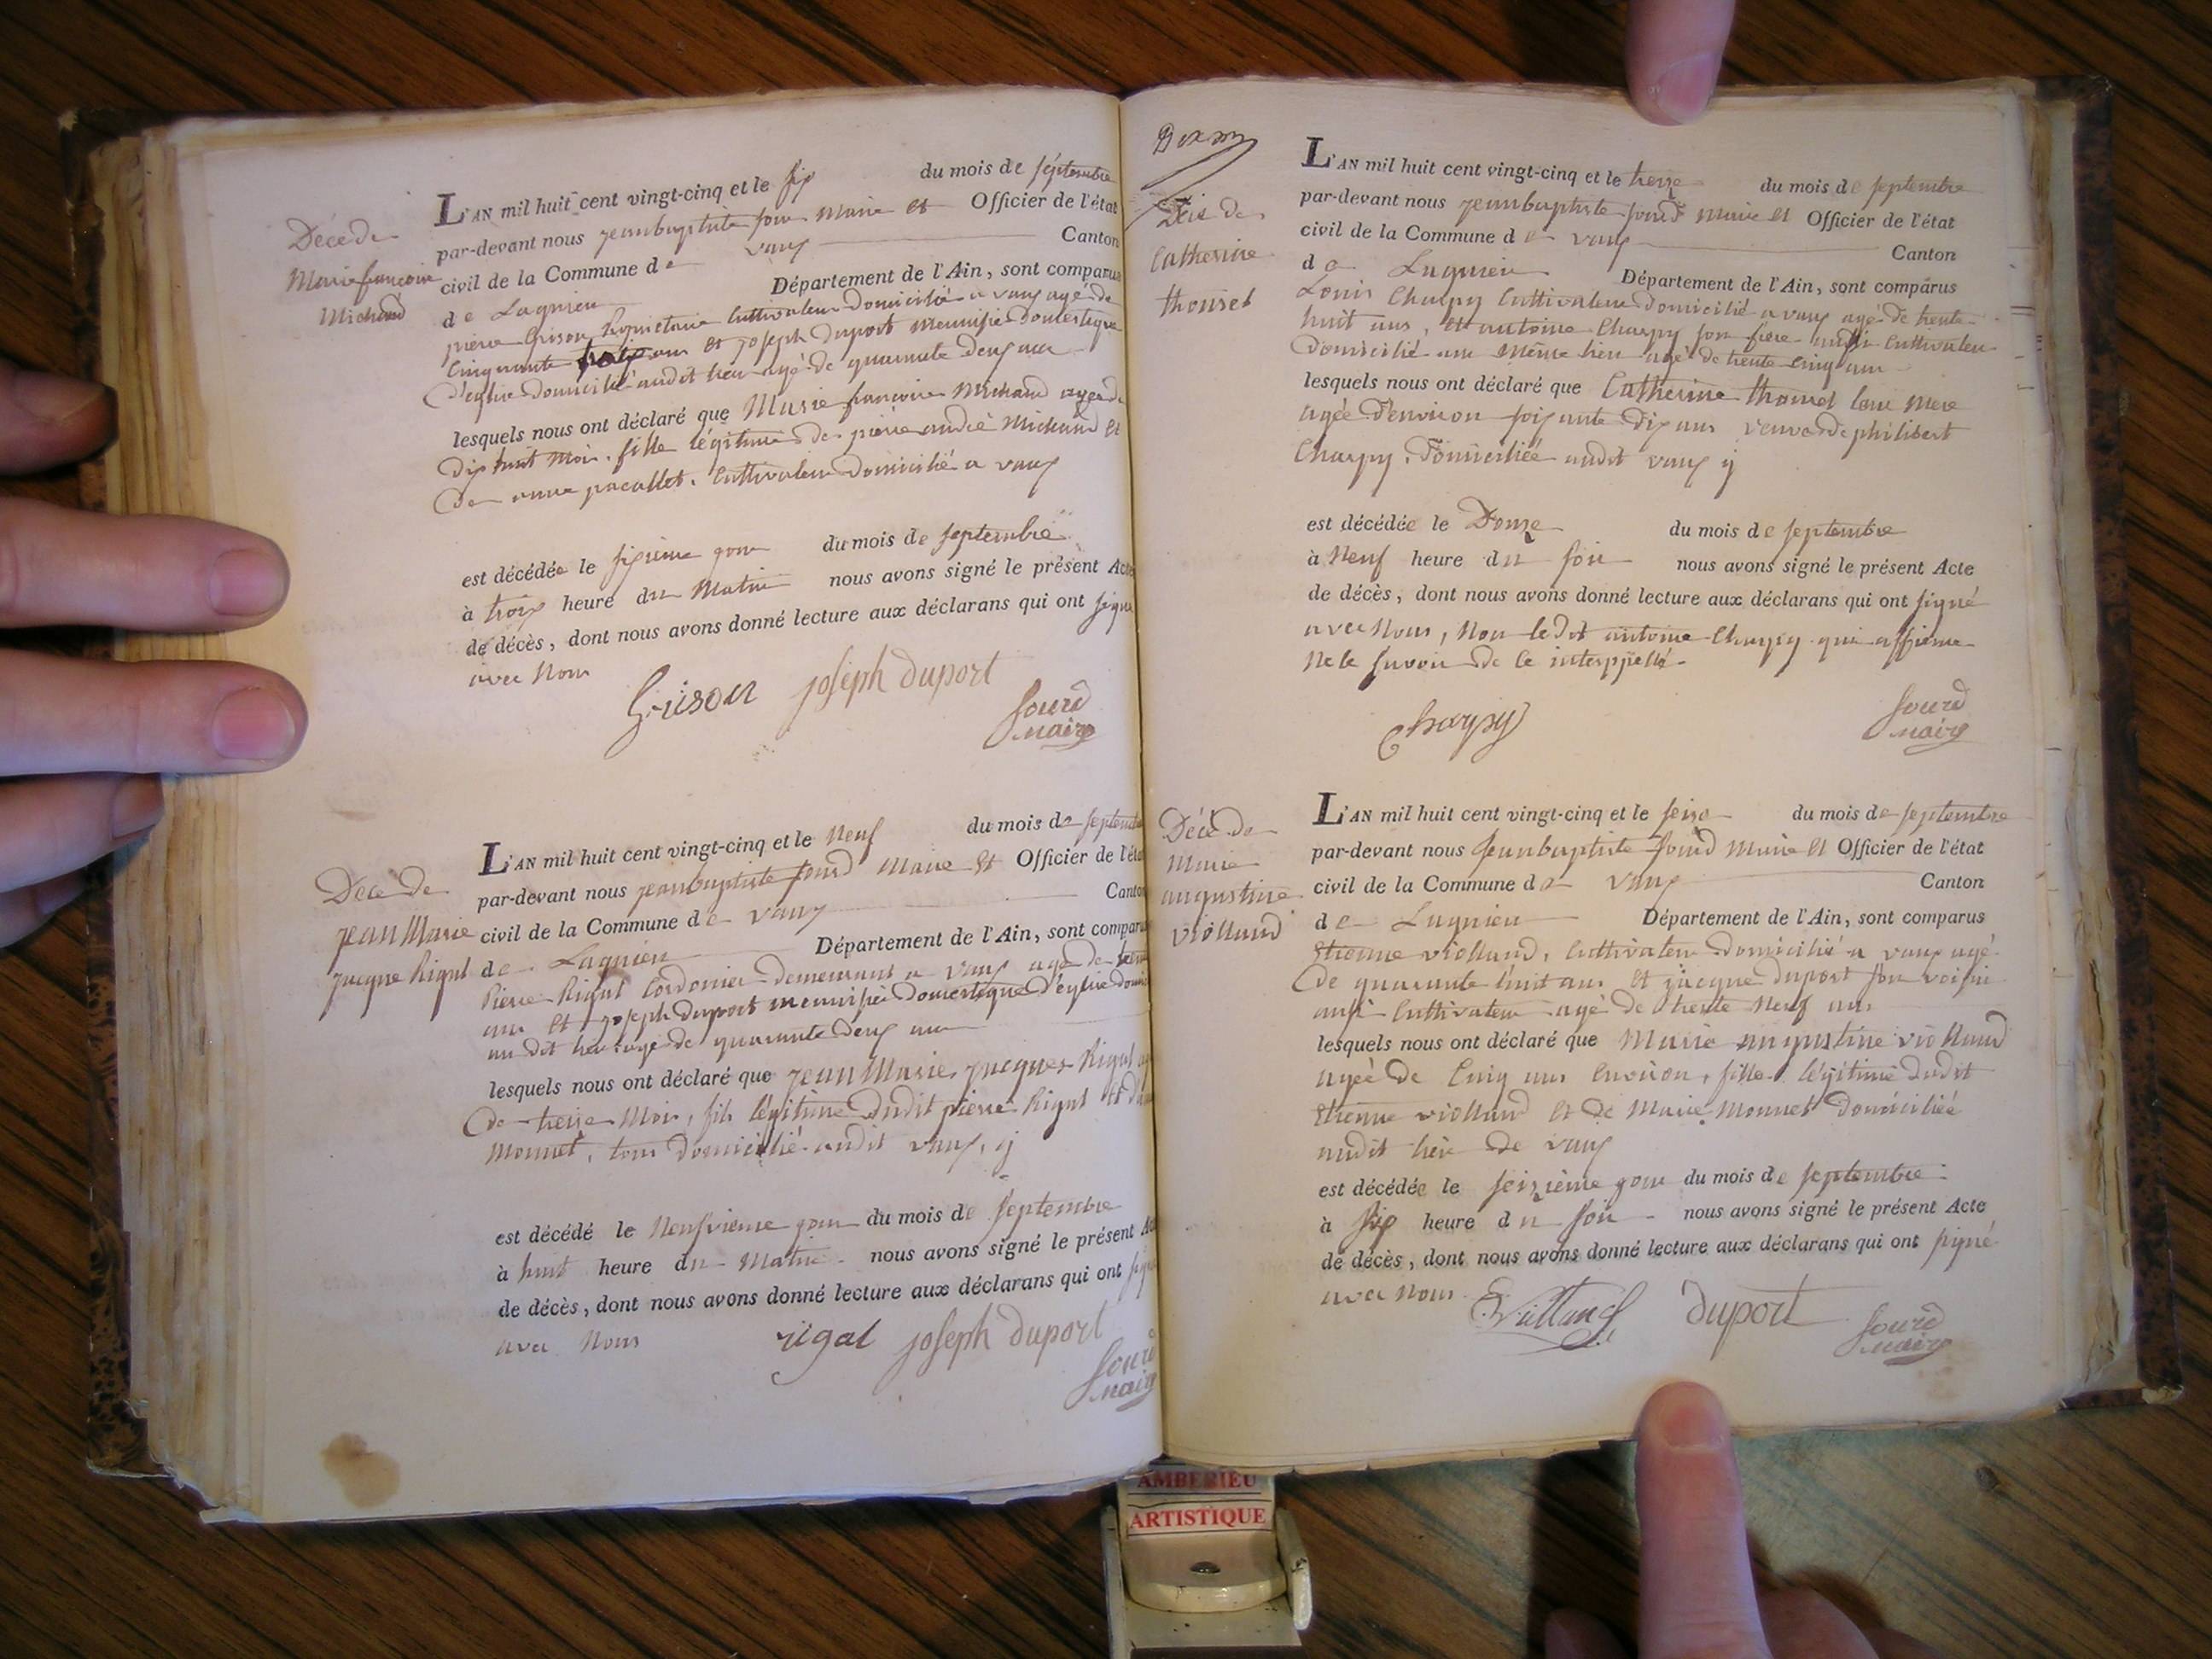 Décè de
Marie françoise
Michaud
L'AN mil huit cent vingt-cinq et le six du mois de septembre
par-devant nous jeanbaptiste Maire et Officier de l'état
civil de la Commune de vaux Canton
de Lagnieu Département de l'Ain, sont comparus
pierre Grison propriétaire Cultivateur domicilié a vaux agé de
Cinquante ans et joseph duport menuisié domestique
d'église domicilié audit lieu agé de quarante deux ans
lesquels nous ont déclaré que Marie françoise Michaud agée de
dix huit mois, fille légitime de pierre andré Michaud et
de anne pacallet, Cultivateur domicilié a vaux
est décédée le sixième jour du mois de septembre
à trois heure du Matin nous avons signé le présent Acte
de décès, dont nous avons donné lecture aux déclarans qui ont signé
avec Nous
Grison joseph duport
maire
Décè de
jean Marie
jacque Rigal
L'AN mil huit cent vingt-cinq et le Neuf du mois de septembre
par-devant nous jeanbaptiste Maire et Officier de l'état
civil de la Commune de vaux Canton
de Lagnieu Département de l'Ain, sont comparus
Pierre Rigal Cordonier demeurant a vaux agé de
ans et joseph duport menuisié domestique d'église
au dit lieu agé de quarante deux ans
lesquels nous ont déclaré que jean Marie jacques Rigal
de treize Mois, fils légitime dudit pierre Rigal et
Monnet, tous domicilié audit vaux, y
est décédé le Neufvieme jour du mois de septembre
à huit heure du Matin nous avons signé le présent Acte
de décès, dont nous avons donné lecture aux déclarans qui ont signé
avec Nous
rigal joseph duport
maire
Décè de
Catherine
L'AN mil huit cent vingt-cinq et le treize du mois de septembre
par-devant nous jeanbaptiste Maire et Officier de l'état
civil de la Commune de vaux Canton
de Lagnieu Département de l'Ain, sont comparus
Louis Charpy Cultivateur domicilié a vaux agé de trente
huit ans, et antoine Charpy son frère aussi Cultivateur
domicilié au même lieu agé de trente cinq ans
lesquels nous ont déclaré que Catherine leur mere
agée d'environ soixante dix ans veuve de philibert
Charpy, domiciliée audit vaux y
est décédée le Douze du mois de septembre
à Neuf heure du soir nous avons signé le présent Acte
de décès, dont nous avons donné lecture aux déclarans qui ont signé
avec Nous, Non le dit antoine Charpy qui affirme
Ne le savoir de ce interppellé
Charpy
maire
Décè de
Marie
augustine
violland
L'AN mil huit cent vingt-cinq et le seize du mois de septembre
par-devant nous jeanbaptiste maire et Officier de l'état
civil de la Commune de vaux Canton
de Lagnieu Département de l'Ain, sont comparus
Etienne violland, Cultivateur domicilié a vaux agé
de quarante huit ans et jacque duport son voisin
aussi Cultivateur agé de trente Neuf ans
lesquels nous ont déclaré que Marie augustine violland
agée de Cinq ans Environ, fille légitime dudit
Etienne violland et de Marie Monnet domiciliée
audit lieu de vaux
est décédée le seizième jour du mois de septembre
à six heure du soir nous avons signé le présent Acte
de décès, dont nous avons donné lecture aux déclarans qui ont signé
avec Nous
duport
maire
AMBERIEU
ARTISTIQUE